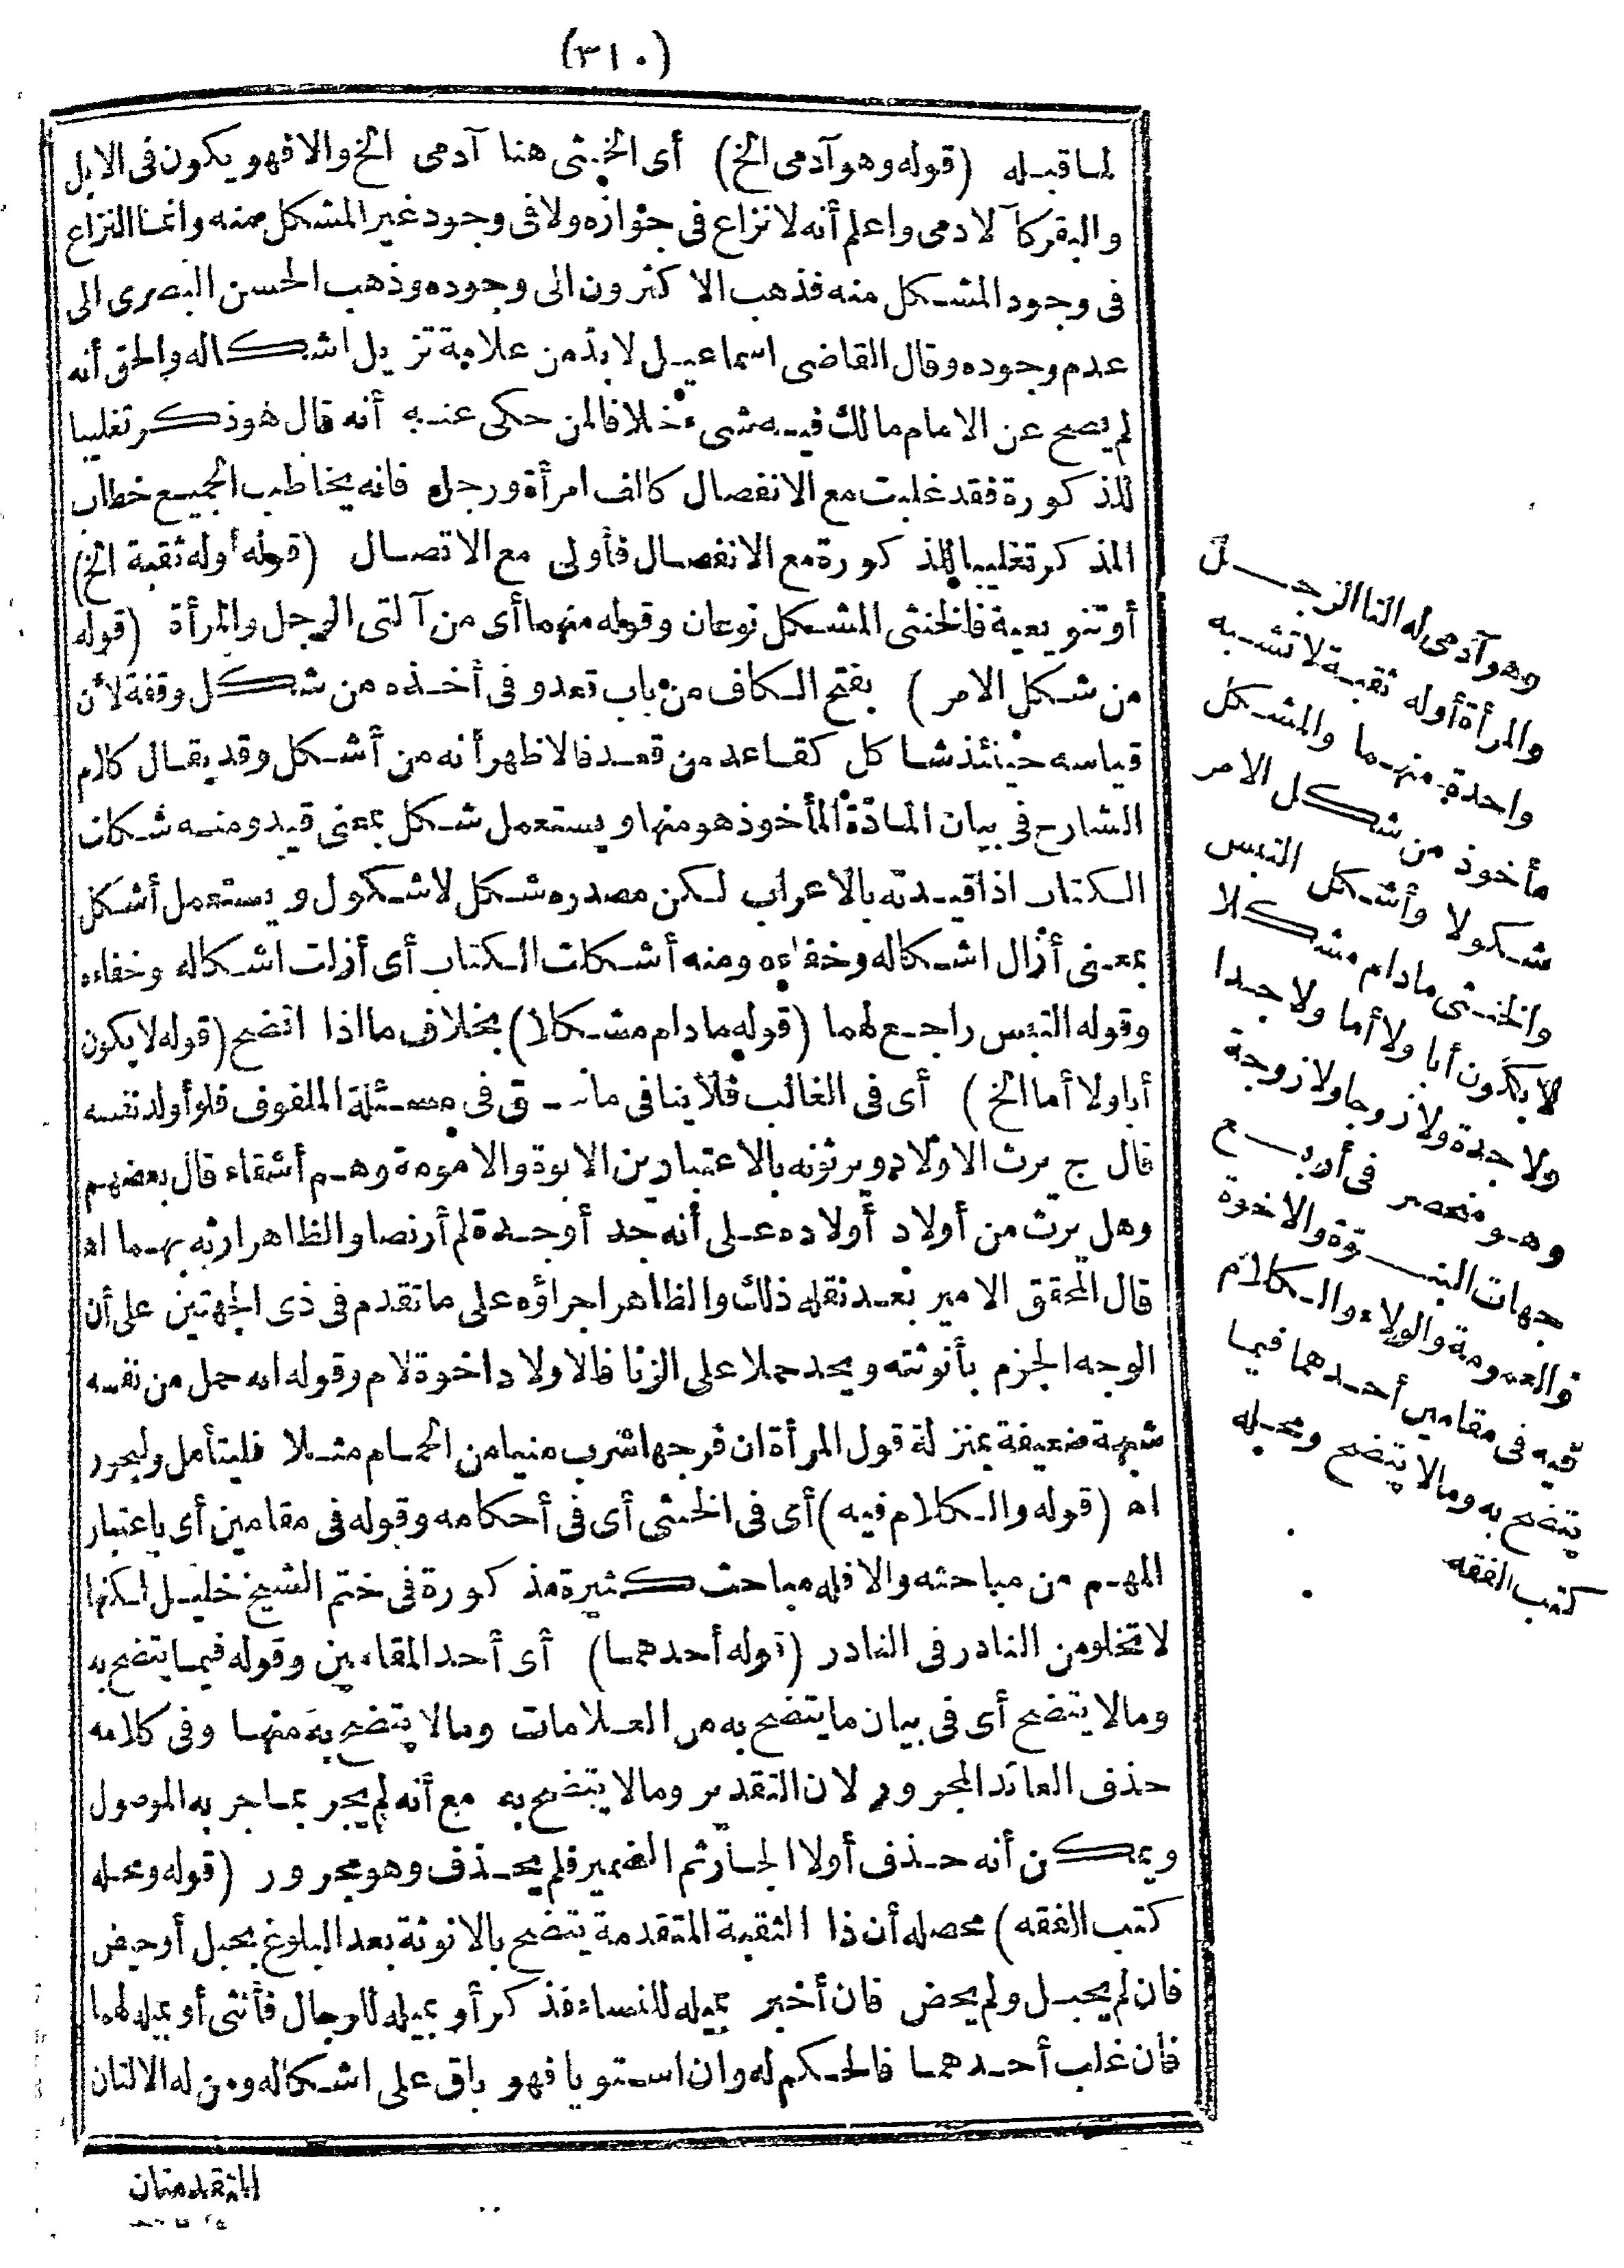 (٣١٠)
لما قبله (قوله وهو آدمى الخ) أى الخنثى هنا آدمى الخ والا فهو يكون فى الابل
والبقر كالآدمى واعلم أنه لا نزاع فى جوازه ولا فى وجود غير المشكل منه وانما النزاع
فى وجود المشكل منه فذهب الاكثرون الى وجوده وذهب الحسن البصرى الى
عدم وجوده وقال القاضى اسماعيل لا بدّ من علامة تزيل اشكاله والحق أنه
لم يصح عن الامام مالك فيه شىء خلافا لمن حكى عنه أنه قال هو ذكر تغليبا
للذكورة فقد غلبت مع الانفصال كالف امرأة ورجل فانه يخاطب الجميع خطاب
المذكر تغليبا للذكورة مع الانفصال فأولى مع الاتصال (قوله أوله ثقبة الخ)
أو تنويعية فالخنثى المشكل نوعان وقوله منهما أى من آلتى الرجل والمرأة (قوله
من شكل الامر) بفتح الكاف من باب تعد وفى أخذه من شكل وقفة لأن
قياسه حينئذ شاكل كقاعد من قعد فالاظهر أنه من أشكل وقد يقال كلام
الشارح فى بيان المادّة المأخوذ هو منها ويستعمل شكل بمعنى قيد ومنه شكلت
الكتاب اذا قيدته بالاعراب لكن مصدره شكل لا شكول ويستعمل أشكل
بمعنى أزال اشكاله وخفاءه ومنه أشكلت الكتاب أى أزلت اشكاله وخفاءه
وقوله التبس راجع لهما (قوله مادام مشكلا) بخلاف ما اذا اتضح (قوله لا يكون
أبا ولا أما الخ) أى فى الغالب فلا ينافى ما سبق فى مسئلة الملفوف فلو أولد نفسه
قال ج يرث الاولاد ويرثونه بالاعتبارين الابوة والامومة وهم أشقاء قال بعضهم
وهل يرث من أولاد أولاده على أنه جد أو جدة لم أر نصا والظاهر ارثه بهما اه
قال المحقق الامير بعد نقله ذلك والظاهر اجراؤه على ما تقدم فى ذى الجهتين على أن
الوجه الجزم بأنوثته ويحد حملا على الزنا فالاولاد اخوة لام وقوله انه حمل من نفسه
شبهة ضعيفة بمنزلة قول المرأة ان فرجها شرب منيا من الحمام مثلا فليتأمل وليحرر
اه (قوله والكلام فيه) أى فى الخنثى أى فى أحكامه وقوله فى مقامين أى باعتبار
المهم من مباحثه والا فله مباحث كثيرة مذكورة فى ختم الشيخ خليل لكنها
لا تخلو من النادر فى النادر (قوله أحدهما) أى أحد المقامين وقوله فيما يتضح به
وما لا يتضح أى فى بيان ما يتضح به من العلامات وما لا يتضح به منها وفى كلامه
حذف العائد المجرور لان التقدير وما لا يتضح به مع أنه لم يجر بما جر به الموصول
ويمكن أنه حذف أولا الجارّ ثم الضمير فلم يحذف وهو مجرور (قوله ومحله
كتب الفقه) محصله أن ذا الثقبة المتقدمة يتضح بالانوثة بعد البلوغ بحبل أو حيض
فان لم يحبل ولم يحض فان أخبر بميله للنساء فذكر أو بميله للرجال فأنثى أو بميله لهما
فان غلب أحدهما فالحكم له وان استويا فهو باق على اشكاله ومن له الالتان
المتقدمتان
وهو آدمى له التا الرجل
والمرأة أوله ثقبة لا تشبه
واحدة منهما والمشكل
مأخوذ من شكل الامر
شكولا وأشكل التبس
والخنثى مادام مشكلا
لا يكون أبا ولا أما ولا جدا
ولا جدة ولا زوجا ولا زوجة
وهو منحصر فى أربع
جهات البنوّة والاخوة
والعمومة والولاء والكلام
فيه فى مقامين أحدهما فيما
يتضح به وما لا يتضح ومحله
كتب الفقه